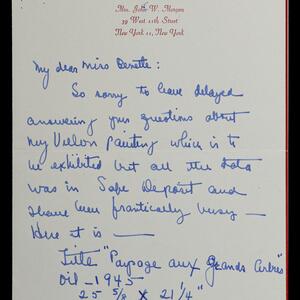 Mrs. John W. Morgan
39 West 11th Street
New York 11, New York
My dear Miss
So sorry to have delayed
answering your questions about
my Villon painting which is to
be exhibited but all the data
was in Safe Deposit and
I have been frantically busy —
Here it is —
Title "Paysage aux Grands Arbres"
Oil - 1945
25 5/8 X 21 1/4"